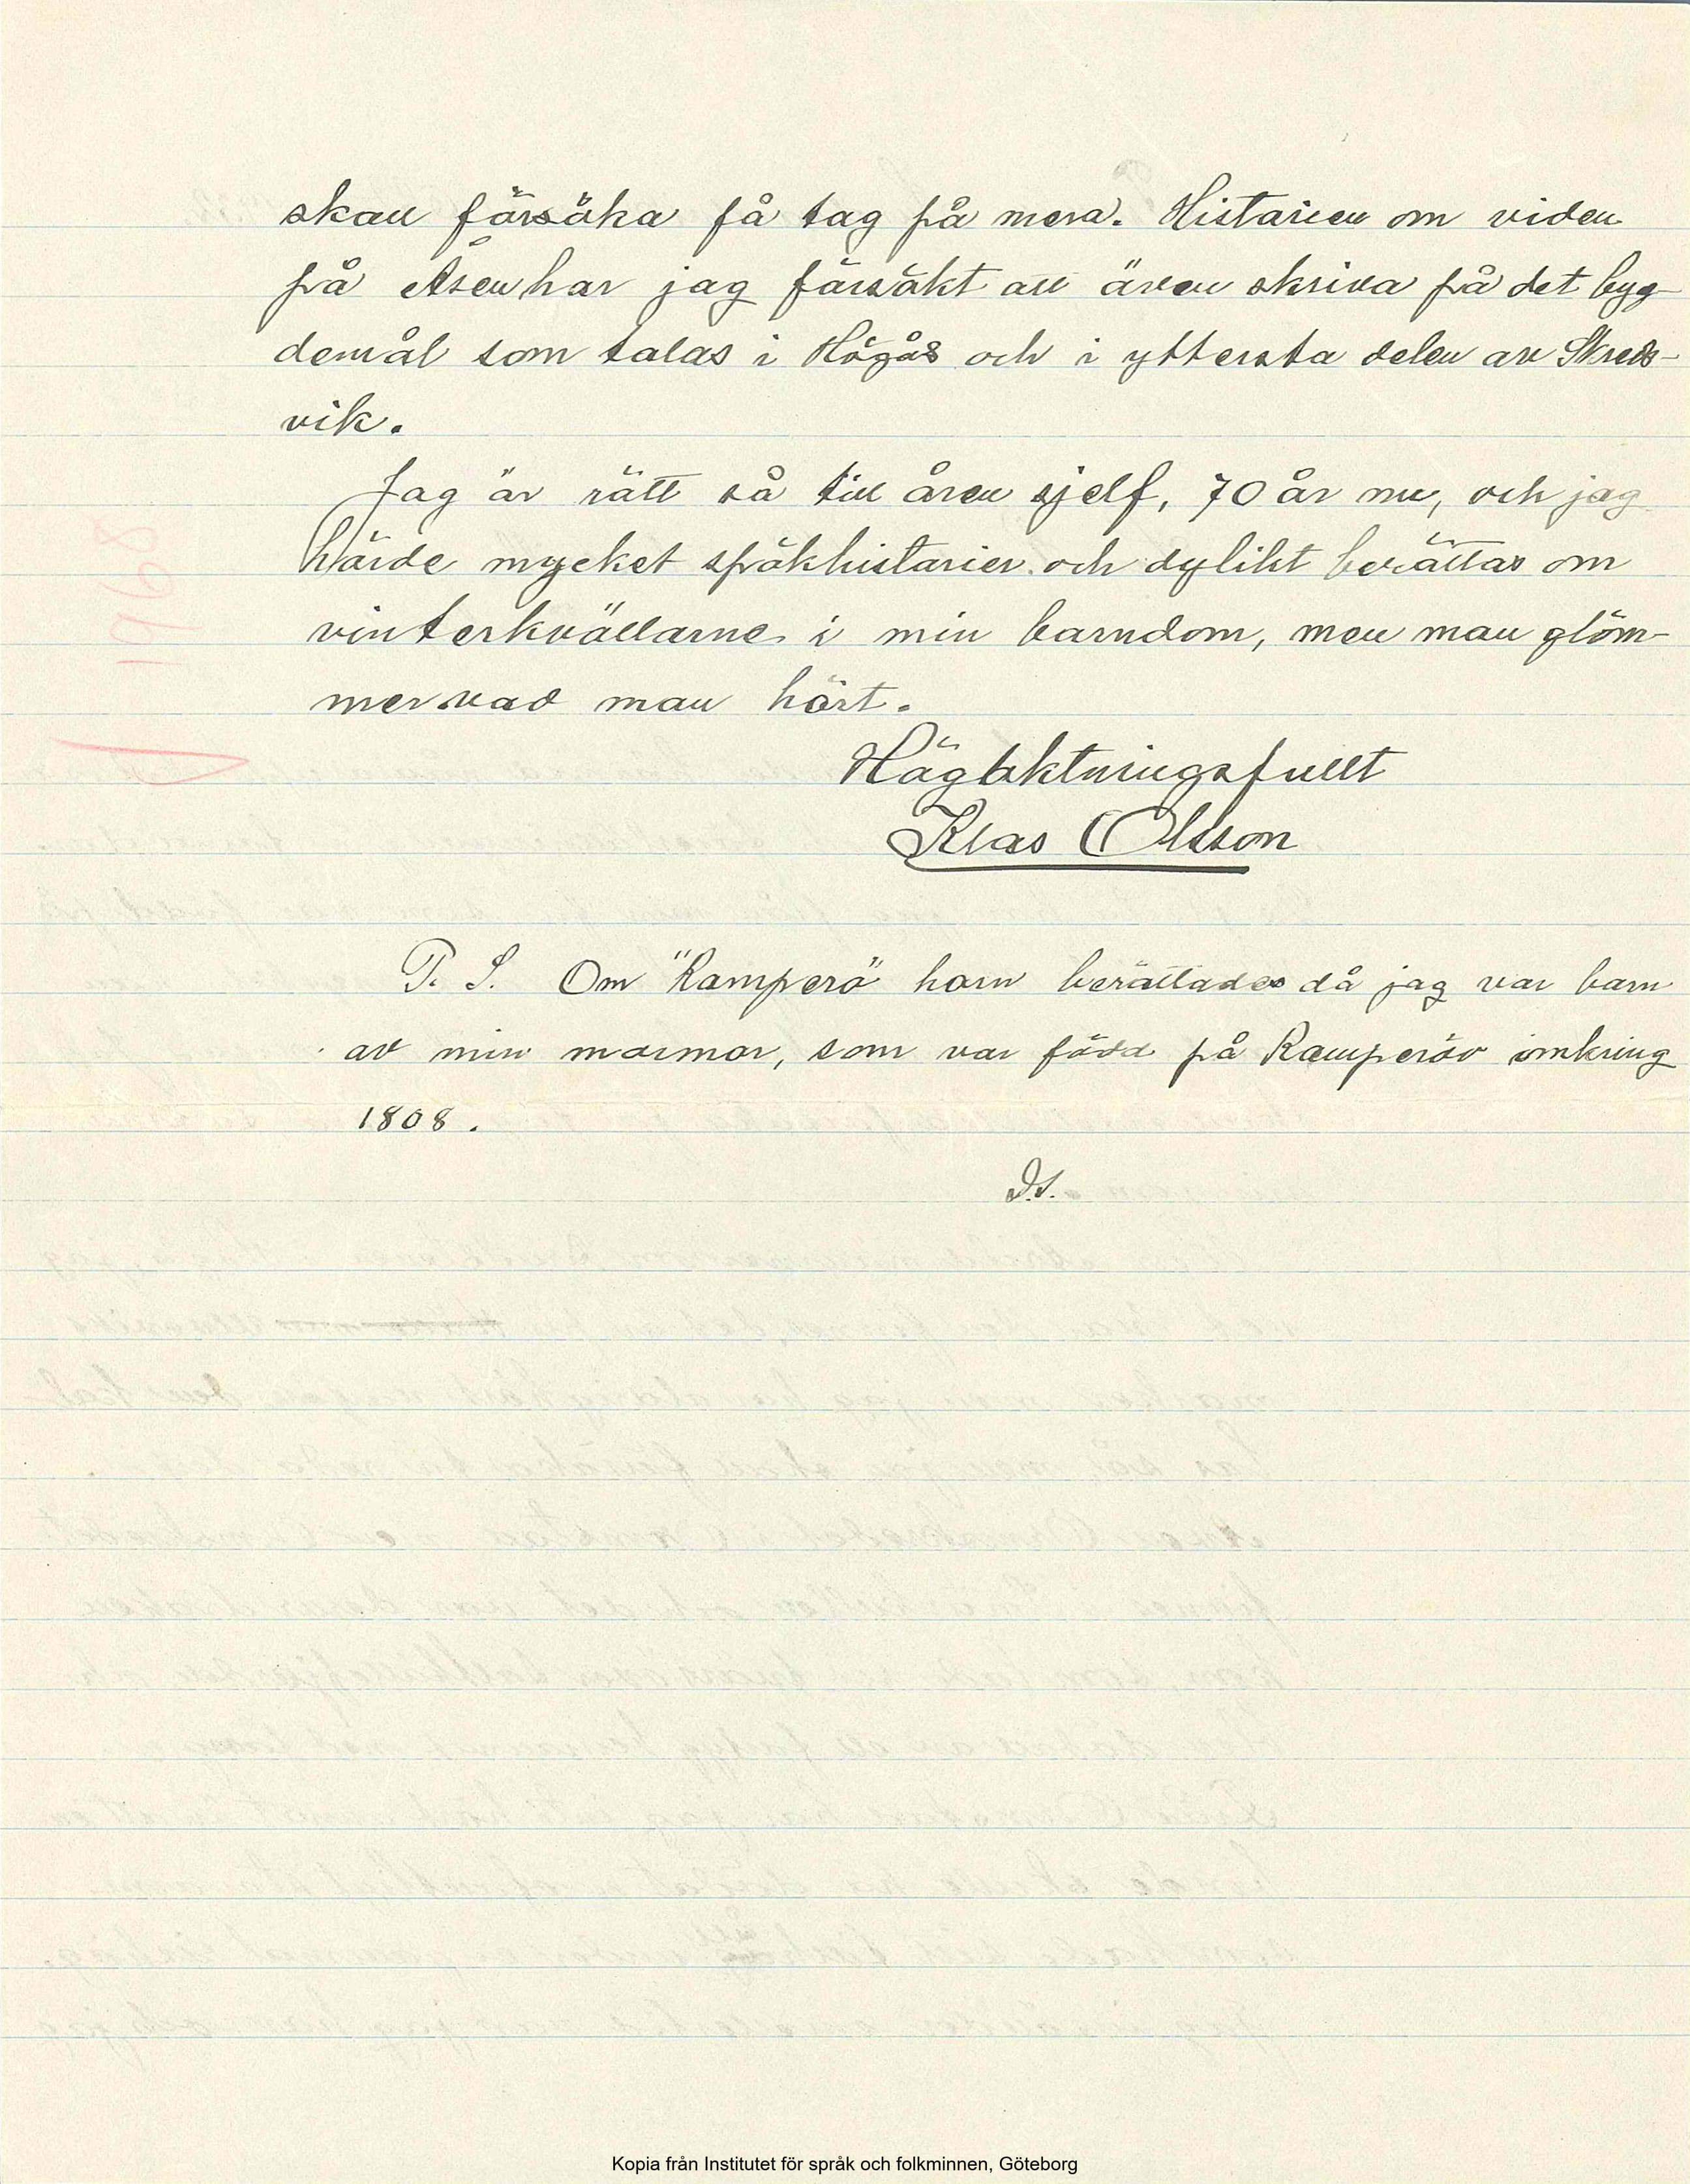 skall försöka få tag på mera. Historien om viden
på Åsen har jag försökt att även skriva på det byg-
demål som talas i Högås och i yttersta delen av Skreds-
vik.
Jag är rätt så till åren sjelf, 70 år nu, och jag
hörde mycket spökhistorier och dylikt berättas om
vinterkvällarne i min barndom, men man glöm-
mer vad man hört.
Högaktningsfullt
Klas Olsson
P. S. Om "Ramperö" horn berättades då jag var barn
av min mormor, som var född på Ramperöv omkring
1808.
D.S.
1968
Kopia från Institutet för språk och folkminnen, Göteborg